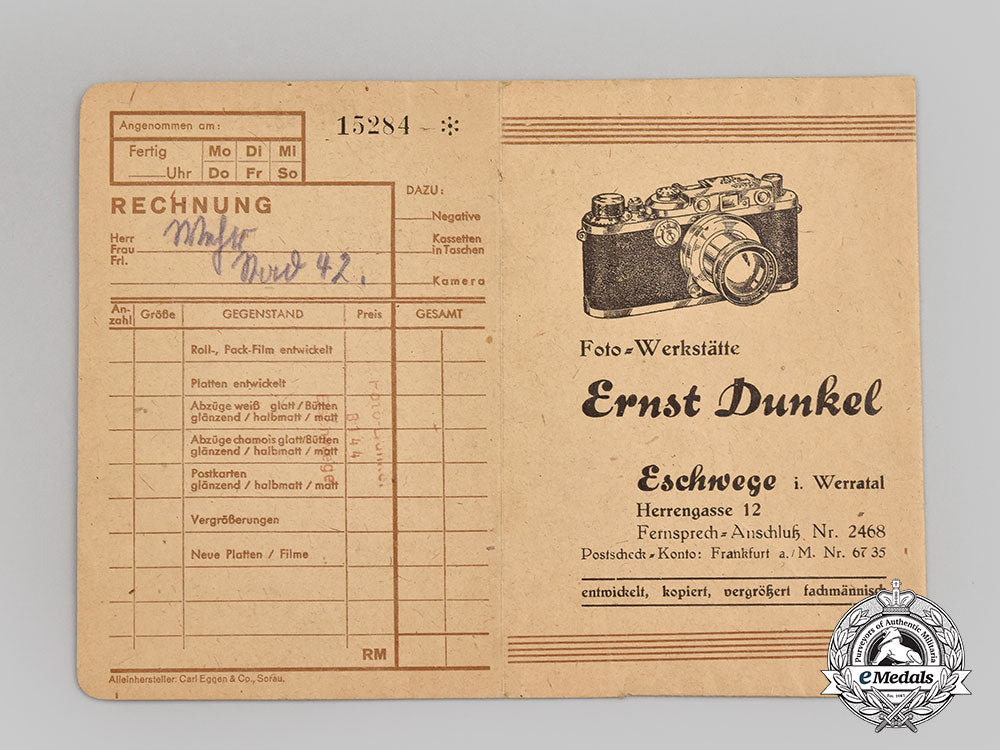 Angenommen am:
Fertig Mo Di Mi
Uhr Do Fr So
15284 - ※
RECHNUNG
Herr
Frau
Frl.
Nord 42.
DAZU:
Negative
Kassetten
in Taschen
Kamera
An-
zahl Größe GEGENSTAND Preis GESAMT
Roll-, Pack-Film entwickelt
Platten entwickelt
Abzüge weiß glatt/Bütten
glänzend / halbmatt / matt
Abzüge chamois glatt/Bütten
glänzend / halbmatt / matt
Postkarten
glänzend / halbmatt / matt
Vergrößerungen
Neue Platten / Filme
RM
Alleinhersteller: Carl Eggen & Co., Sorau.
Foto=Werkstätte
Ernst Dunkel
Eschwege i. Werratal
Herrengasse 12
Fernsprech=Anschluß Nr. 2468
Postscheck=Konto: Frankfurt a./M. Nr. 67 35
entwickelt, kopiert, vergrößert fachmännisch
Purveyors of Authentic Militaria
eMedals